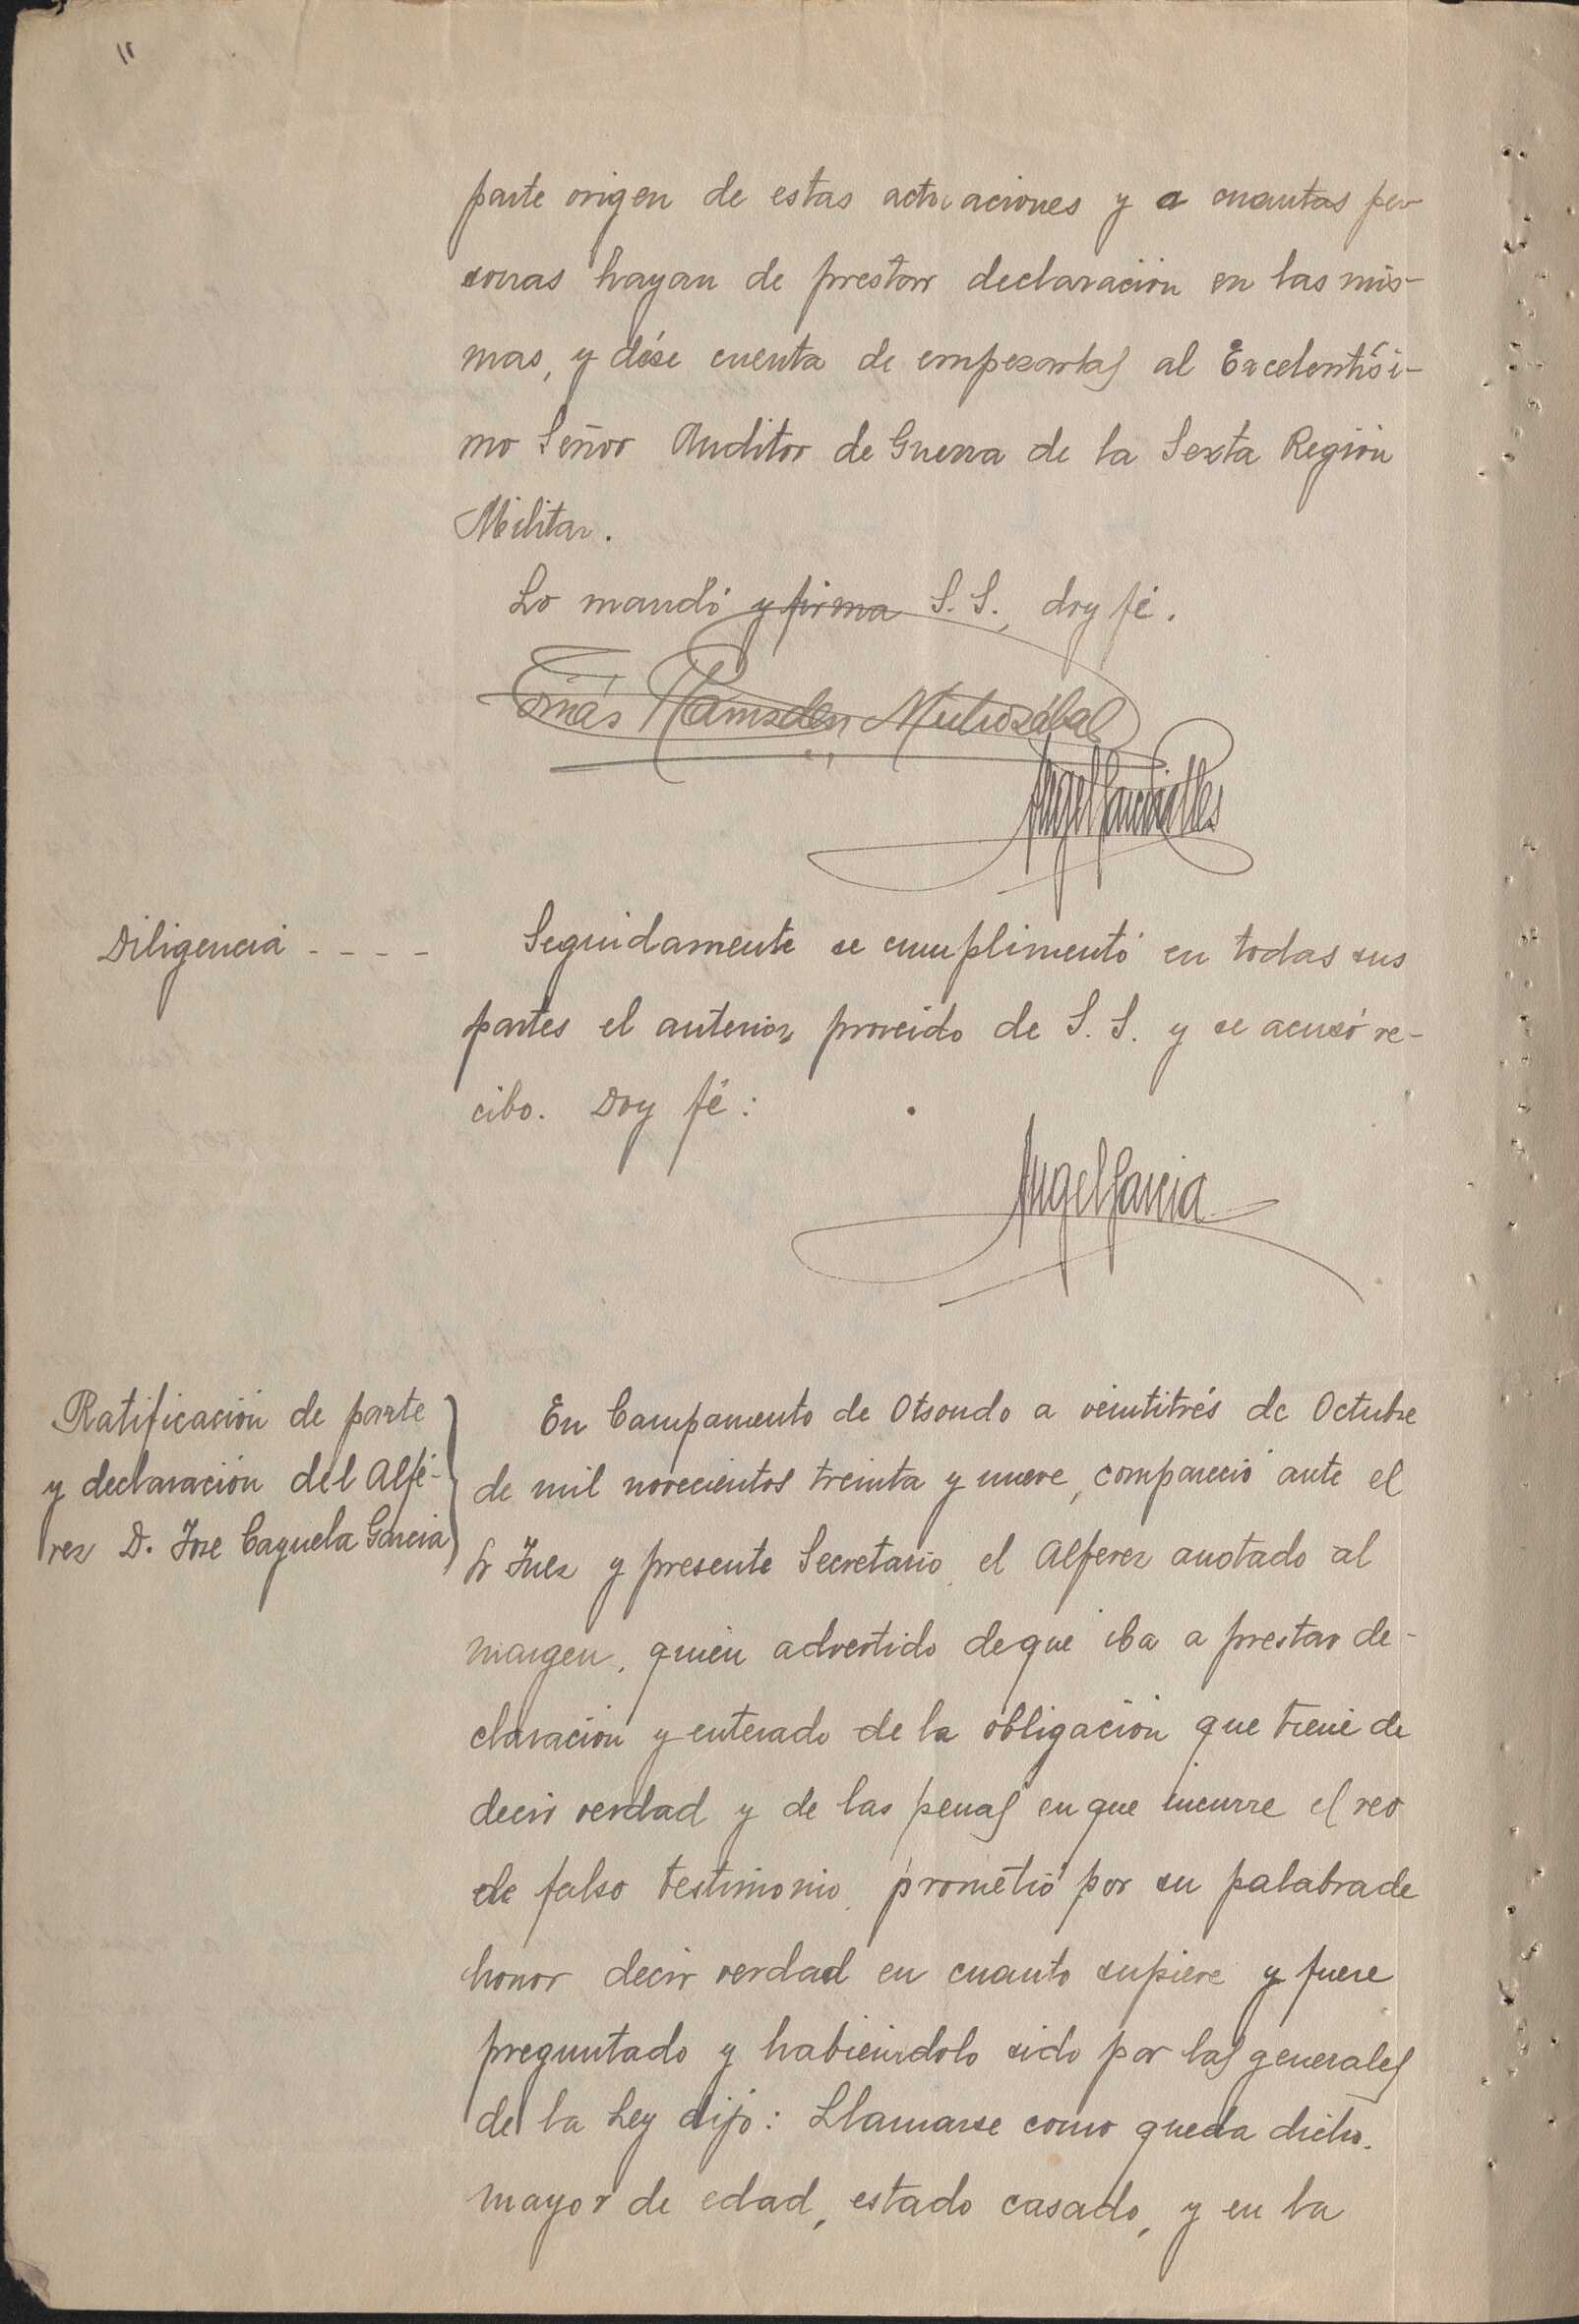 parte origen de estas actuaciones y a cuantas per
sonas hayan de prestar declaración en las mis-
mas, y dése cuenta de empezarlas al Excelentísi-
mo Señor Auditor de Guerra de la Sexta Región
Militar.
Lo mandó y firma S. S., doy fé.
Tomás Ramsden
Angel Garcia
Diligencia - - - -
Seguidamente se cumplimentó en todas sus
partes el anterior proveido de S. S. y se acusó re-
cibo. Doy fé:
Angel Garcia
Ratificación de parte
y declaración del Alfé-
rez D. Jose Cayuela Garcia
En Campamento de Otsondo a veintitrés de Octubre
de mil novecientos treinta y nueve, compareció ante el
Sr Juez y presente Secretario, el Alferez anotado al
margen, quien advertido de que iba a prestar de-
claración y enterado de la obligación que tiene de
decir verdad y de las penas en que incurre el reo
de falso testimonio, prometió por su palabra de
honor decir verdad en cuanto supiere y fuere
preguntado y habiéndolo sido por las generales
de la Ley dijo: Llamarse como queda dicho,
mayor de edad, estado casado, y en la